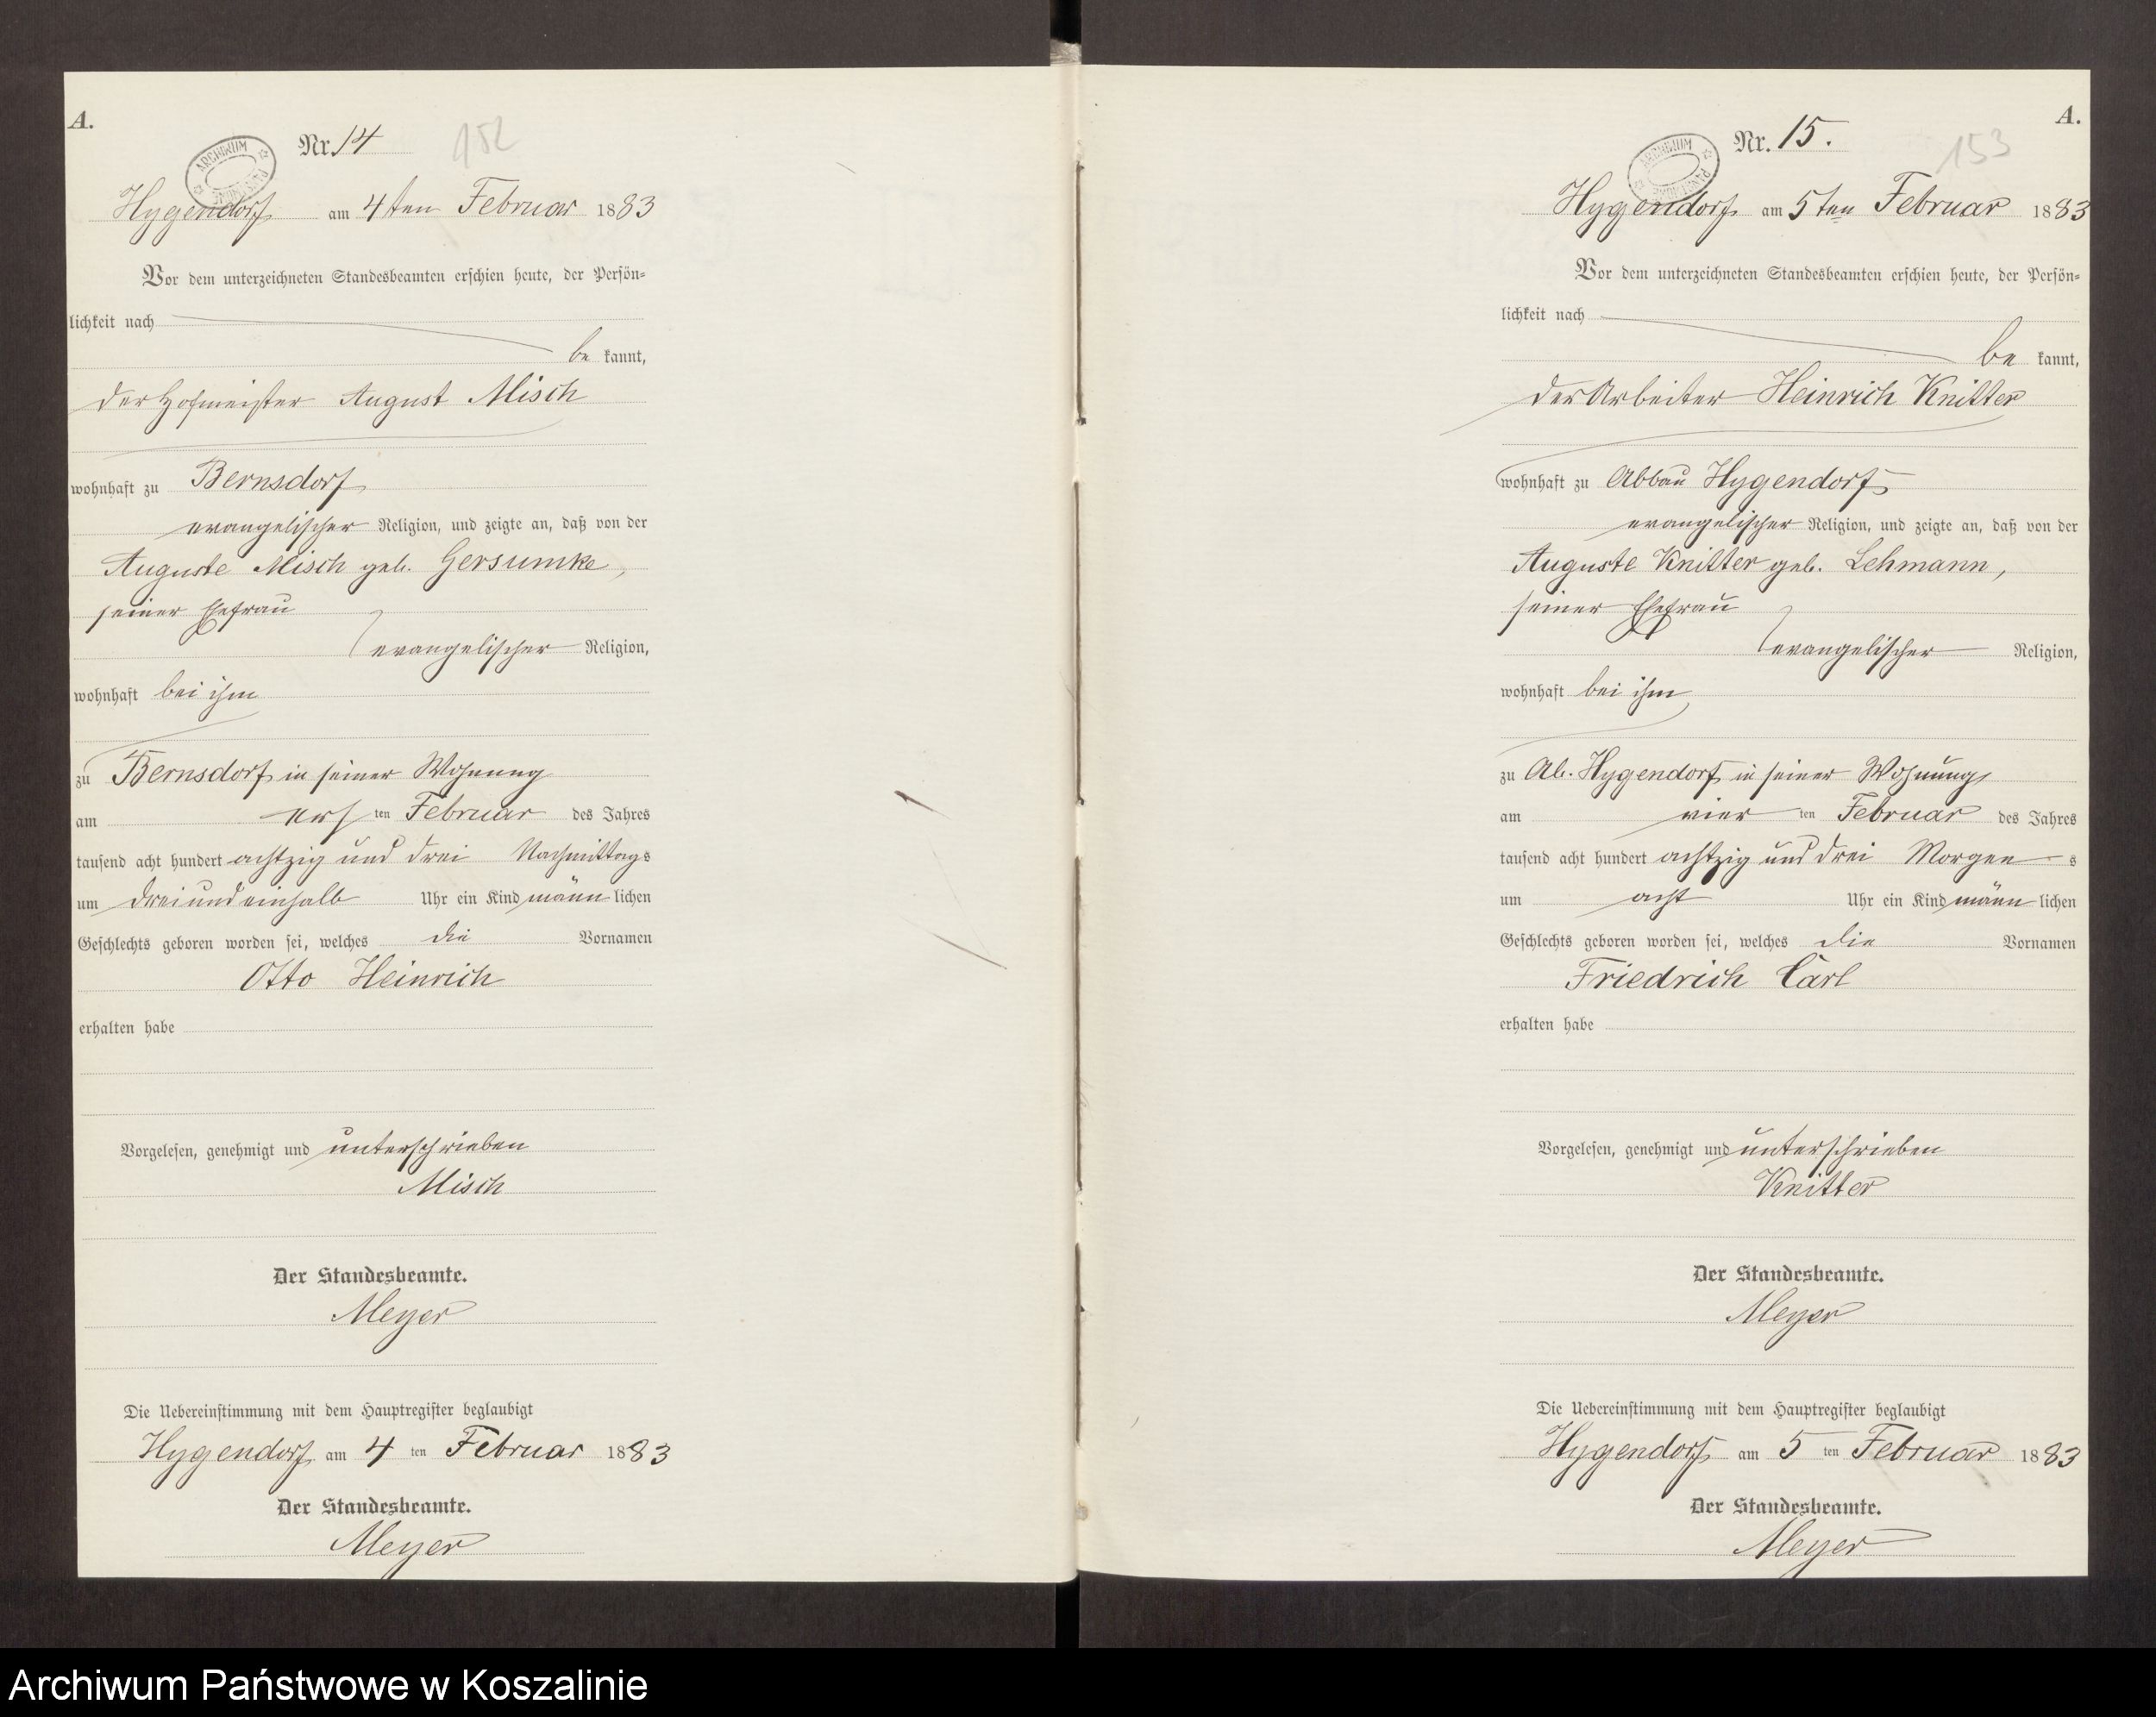 A.
Nr. 14
152
ARCHIWUM
Hygendorf am 4ten Februar 1883
Vor dem unterzeichneten Standesbeamten erschien heute, der Persön=
lichkeit nach
be kannt,
der Hofmeister August Misch
wohnhaft zu Bernsdorf
evangelischer Religion, und zeigte an, daß von der
Auguste Misch geb. Gersumke,
seiner Ehefrau
evangelischer Religion,
wohnhaft bei ihm
zu Bernsdorf in seiner Wohnung
am ers ten Februar des Jahres
tausend acht hundert achtzig und drei Nachmittags
um drei und einhalb Uhr ein Kind männ lichen
Geschlechts geboren worden sei, welches die Vornamen
Otto Heinrich
erhalten habe
Vorgelesen, genehmigt und unterschrieben
Misch
Der Standesbeamte.
Meyer
Die Uebereinstimmung mit dem Hauptregister beglaubigt
Hygendorf am 4 ten Februar 1883
Der Standesbeamte.
Meyer
A.
Nr. 15.
153
ARCHIWUM
Hygendorf am 5ten Februar 1883
Vor dem unterzeichneten Standesbeamten erschien heute, der Persön=
lichkeit nach
be kannt,
der Arbeiter Heinrich Knitter
wohnhaft zu Abbau Hygendorf
evangelischer Religion, und zeigte an, daß von der
Auguste Knitter geb. Lehmann,
seiner Ehefrau
evangelischer Religion,
wohnhaft bei ihm
zu Ab. Hygendorf in seiner Wohnung
am vier ten Februar des Jahres
tausend acht hundert achtzig und drei Morgen s
um acht Uhr ein Kind männ lichen
Geschlechts geboren worden sei, welches die Vornamen
Friedrich Carl
erhalten habe
Vorgelesen, genehmigt und unterschrieben
Knitter
Der Standesbeamte.
Meyer
Die Uebereinstimmung mit dem Hauptregister beglaubigt
Hygendorf am 5 ten Februar 1883
Der Standesbeamte.
Meyer
Archiwum Państwowe w Koszalinie